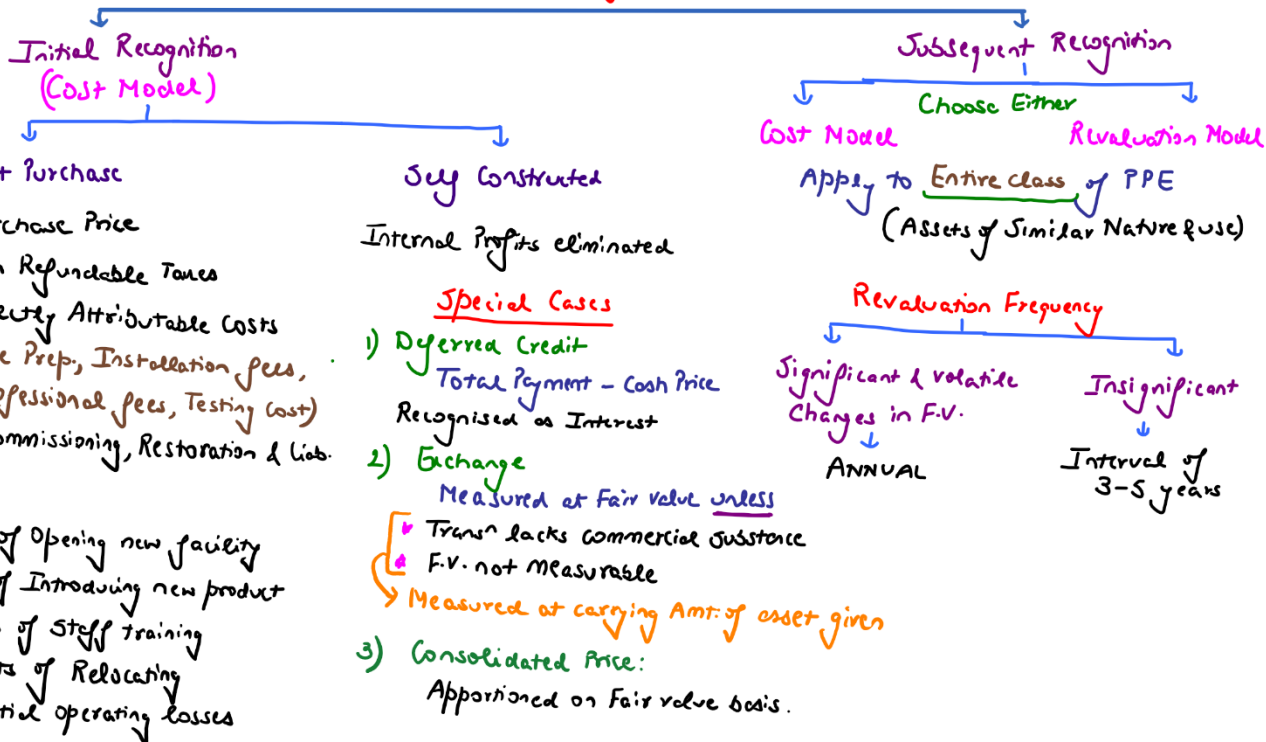 Initial Recognition
(Cost Model)
Purchase
Purchase Price
Refundable Taxes
Attributable Costs
Prep., Installation fees,
fees, Testing cost)
Restoration & Liab.
of Opening new facility
of Introducing new product
of Staff training
of Relocating
operating losses
Self Constructed
Internal Profits eliminated
Special Cases
1) Deferred Credit
Total Payment - Cash Price
Recognised as Interest
2) Exchange
Measured at Fair value unless
Transn lacks commercial substance
F.V. not measurable
Measured at carrying Amt. of asset given
3) Consolidated Price:
Apportioned on Fair value basis.
Subsequent Recognition
Choose Either
Cost Model Revaluation Model
Apply to Entire class of PPE
(Assets of Similar Nature & use)
Revaluation Frequency
Significant & volatile
Changes in F.V.
ANNUAL
Insignificant
Interval of
3-5 years